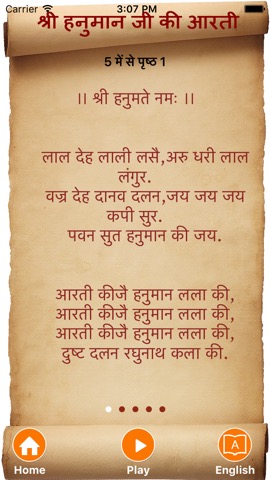 Carrier 3:07 PM
श्री हनुमान जी की आरती
5 में से पृष्ठ 1
।। श्री हनुमते नमः ।।
लाल देह लाली लसै,अरु धरी लाल
लंगुर.
वज्र देह दानव दलन,जय जय जय
कपी सुर.
पवन सुत हनुमान की जय.
आरती कीजै हनुमान लला की,
आरती कीजै हनुमान लला की,
आरती कीजै हनुमान लला की,
दुष्ट दलन रघुनाथ कला की.
Home Play English